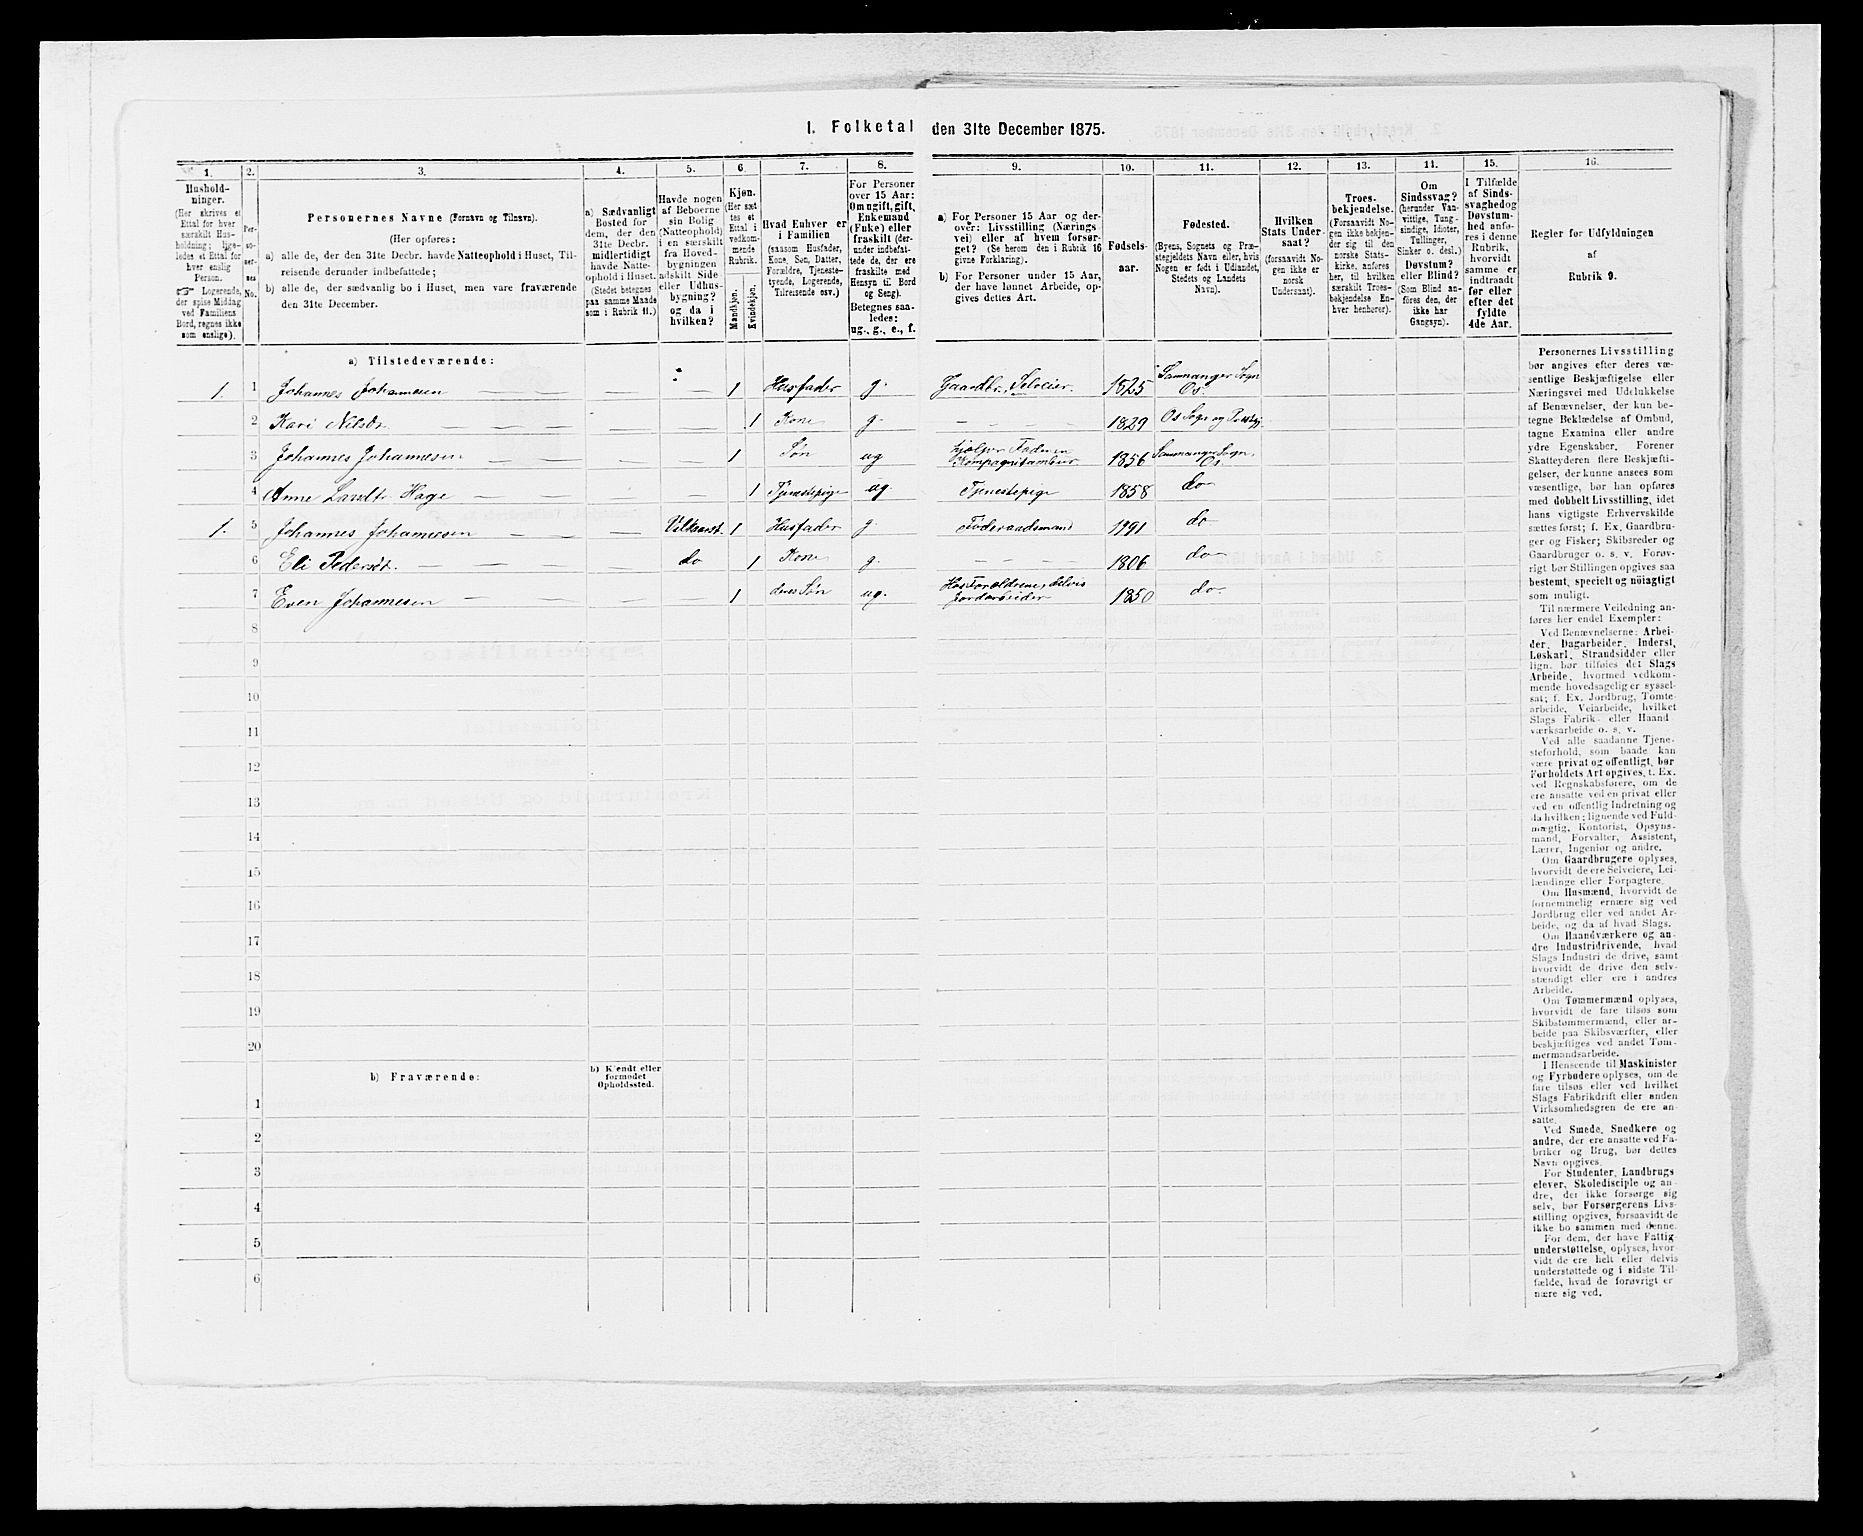 I. Folketal den 31te December 1875.
1. 2. 3. 4. 5. 6. 7. 8. 9. 10. 11. 12. 13. 14. 15. 16.
Hushold-
ninger.
(Her skrives et
Ettal for hver
særskilt Hus-
holdning; lige-
ledes et Ettal for
hver enslig
Person.
☞ Logerende,
der spise Middag
ved Familiens
Bord, regnes ikke
som enslige).
Per-
so-
ner-
nes
No.
Personernes Navne (Fornavn og Tilnavn).
(Her opføres:
a) alle de, der den 31te Decbr. havde Natteophold i Huset, Til-
reisende derunder indbefattede;
b) alle de, der sædvanlig bo i Huset, men vare fraværende
den 31te December.
a) Sædvanligt
Bosted for
dem, der den
31te Decbr.
midlertidigt
havde Natte-
ophold i Huset.
(Stedet betegnes
paa samme Maade
som i Rubrik 11.)
Havde nogen
af Beboerne
sin Bolig
(Natteophold)
i en særskilt
fra Hoved-
bygningen
adskilt Side
eller Udhus-
bygning?
og da i
hvilken?
Kjøn.
(Her sæt
tes et
Ettal i
vedkom-
mende
Rubrik.
Mandkjøn.
Kvindekjøn.
Hvad Enhver er
i Familien
(saasom Husfader,
Kone, Søn, Datter,
Forældre, Tjeneste-
tyende, Logerende,
Tilreisende osv.)
For Personer
over 15 Aar:
Om ugift, gift,
Enkemand
(Fuke) eller
fraskilt (der-
under indbefat-
tede de, der ere
fraskilte med
Hensyn til Bord
og Seng).
Betegnes saa-
ledes:
ug., g., e., f.
a) For Personer 15 Aar og der-
over: Livsstilling (Nærings
vei) eller af hvem forsør-
get? (Se herom den i Rubrik 16
givne Forklaring).
b) For Personer under 15 Aar,
der have lønnet Arbeide, op-
gives dettes Art.
Fødsels-
aar.
Fødested.
(Byens, Sognets og Præ-
stegjeldets Navn eller, hvis
Nogen er født i Udlandet,
Stedets og Landets
Navn).
Hvilken
Stats Under-
saat?
(forsaavidt No-
gen ikke er
norsk
Undersaat).
Troes-
bekjendelse.
(Forsaavidt No-
gen ikke bekjen-
der sig til den
norske Stats-
kirke, anføres
her, til hvilken
særskilt Troes-
bekjendelse En-
hver henhører).
Om
Sindssvag?
(herunder Van-
vittige, Tung-
sindige, Idioter,
Tullinger,
Sinker o. desl.)
Døvstum?
eller Blind?
(Som Blind an-
føres den, der
ikke har
Gangsyn).
I Tilfælde
af Sinds-
svaghed og
Døvstum-
hed anfø-
res i denne
Rubrik,
hvorvidt
samme er
indtraadt
før eller
efter det
fyldte
4de Aar.
Regler før Udfyldningen
af
Rubrik 9.
a) Tilstedeværende:
1. 1 Johannes Johannesen — — — — — 1 Husfader g. Gaardbr. Selveier 1825 Samnanger Sogn Os
2 Kari Nilsdr. — — — — — 1 Kone g. — — — 1829 Os Sogn og
3 Johannes Johannesen — — — 1 Søn ug hjelper Faderen Kompagnitambur 1856 Samnanger Sogn, Os
4 Anne Hage — — — — 1 Tjenestepige ug. Tjenestepige 1858 do
1. 5 Johannes Johannesen — — — 1 Husfader g. Føderaadsmand 1791 do
6 Eli Pedersdt. — — — — do 1 Kone g. — — 1806 do
7 Even Johannesen — — — — 1 deres Søn ug. Hos Forældrene, delvis Jordarbeider 1850 do
8
9
10
11
12
13
14
15
16
17
18
19
20
b) Fraværende:
b) Kjendt eller
formodet
Opholdssted.
1
2
3
4
5
6
Personernes Livsstilling
bør angives efter deres væ-
sentlige Beskjæftigelse eller
Næringsvei med Udelukkelse
af Benævnelser, der kun be-
tegne Beklædelse af Ombud,
tagne Examina eller andre
ydre Egenskaber. Forener
Skatteyderen flere Beskjæfti-
gelser, der kunne ansees som
væsentlige, bør han opføres
med dobbelt Livsstilling, idet
hans vigtigste Erhvervskilde
sættes først; f. Ex. Gaardbru-
ger og Fisker; Skibsreder og
Gaardbruger o. s. v. Forøv-
rigt bør Stillingen opgives saa
bestemt, specielt og nöiagtigt
som muligt.
Til nærmere Veiledning an-
føres her endel Exempler:
Ved Benævnelserne: Arbei-
der, Dagarbeider, Inderst,
Løskarl, Strandsidder eller
lign. bør tilføies det Slags
Arbeide, hvormed vedkom-
mende hovedsagelig er syssel-
sat; f. Ex. Jordbrug, Tomte-
arbeide, Veiarbeide, hvilket
Slags Fabrik- eller Haand
værksarbeide o. s. v.
Ved alle saadanne Tjene-
steforhold, som baade kan
være privat og offentligt, bør
Forholdets Art opgives, t. Ex.
ved Regnskabsførere, om de
ere ansatte ved en privat eller
ved en offentlig Indretning og
da hvilken; lignende ved Fuld-
mægtig, Kontorist, Opsyns-
mand, Forvalter, Assistent,
Lærer, Ingeniør og andre.
Om Gaardbrugere oplyses,
hvorvidt de ere Selveiere, Lei-
lændinge eller Forpagtere.
Om Husmænd, hvorvidt de
fornemmelig ernære sig ved
Jordbrug eller ved andet Ar-
beide, og da af hvad Slags.
Om Haandværkere og an-
dre Industridrivende, hvad
Slags Industri de drive, samt
hvorvidt de drive den selv-
stændigt eller ere i andres
Arbeide.
Om Tømmermænd oplyses,
hvorvidt de fare tilsøs som
Skibstømmermænd, eller ar-
beide paa Skibsværfter, eller
beskjæftiges ved andet Tøm-
mermandsarbeide.
I Henseende til Maskinister
og Fyrbødere oplyses, om de
fare tilsøs eller ved hvilket
Slags Fabrikdrift eller anden
Virksomhedsgren de ere an-
satte.
Ved Smede, Snedkere og
andre, der ere ansatte ved Fa-
briker og Brug, bør dettes
Navn opgives.
For Studenter, Landbrugs
elever, Skoledisciple og an-
dre, der ikke forsørge sig
selv, bør Forsørgerens Livs-
stilling opgives, forsaavidt de
ikke bo sammen med denne.
For dem, der have Fattig-
understøttelse, oplyses, hvor-
vidt de ere helt eller delvis
understøttede og i sidste Til-
fælde, hvad de forøvrigt er
nære sig ved.